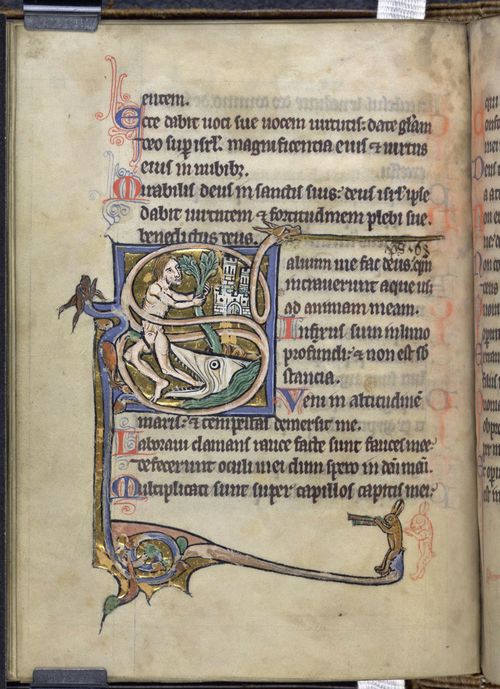 entem.
Ecce dabit uoci sue uocem uirtutis: date gl'am
deo sup isrl'. magnificentia eius & uirtus
eius in nubib;.
Mirabilis deus in sanctis suis: deus isrl' ipse
dabit uirtutem & fortitudinem plebi sue
benedictus deus.
Saluum me fac deus: qm̄
intrauerunt aque usq;
ad animam meam.
Infixus sum in limo
profundi: & non est sub
stancia.
Veni in altitudinē
maris: & tempestas demersit me.
Laboraui clamans rauce facte sunt fauces mee
defecerunt oculi mei dum spero in deū meū.
Multiplicati sunt super capillos capitis mei: